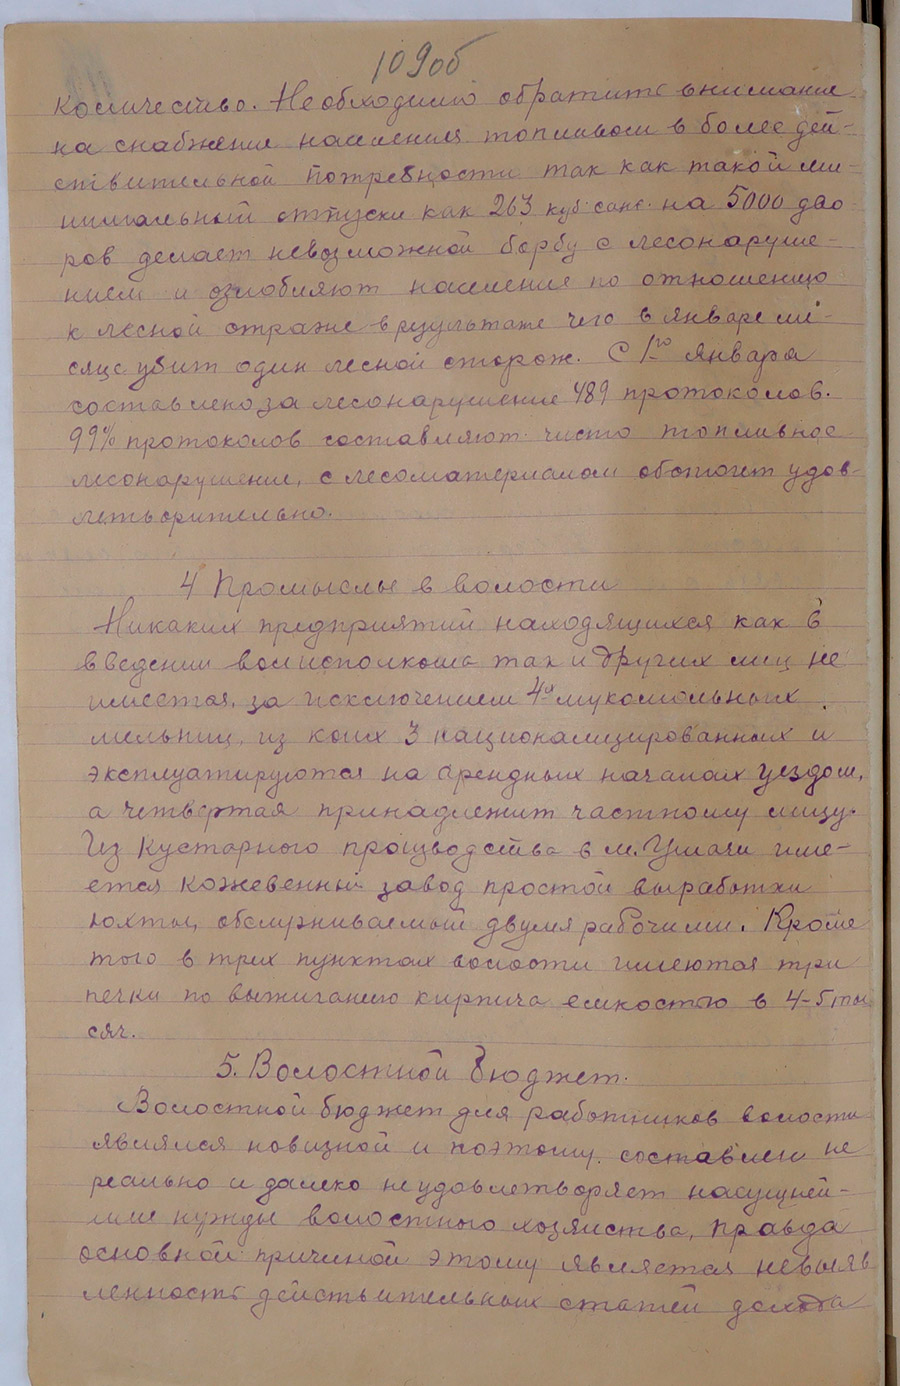 109об
количество. Необходимо обратить внимание
на снабжение населения топливом в более дей-
ствительной потребности так как такой ми-
нимальный отпуски как 263 куб. саж. на 5000 дво
ров делает невозможной борбу с лесонаруше-
нием и озлобляют население по отношению
к лесной страже в результате чего в январе ме-
сяце убит один лесной сторож. С 1го января
составлено за лесонарушение 489 протоколов.
99% протоколов составляют чисто топливное
лесонарушение, с лесоматериалом обстоит удов-
летворительно.
4 Промыслы в волости
Никаких предприятий находящихся как в
введении волисполкома так и других лиц не
имеется, за исключением 4х мукомольных
мельниц, из коих 3 национализированных и
эксплуатируются на арендных началах уездом,
а четвертая принадлежит частному лицу.
Из кустарного производства в м. Ушачи име-
ется кожевенный завод простой выработки
юхты, обслуживаемый двумя рабочими. Кроме
того в трех пунктах волости имеются три
печки по выжиганию кирпича емкостью в 4-5 ты
сяч.
5. Волостной бюджет.
Волостной бюджет для работников волости
являлся новизной и поэтому составлен не
реально и далеко неудовлетворяет насущней-
шие нужды волостного хозяйства, правда
основной причиной этому является невыяв
ленность действительных статей дохода